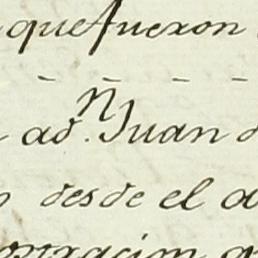 que fueron
a dn. Juan
desde el